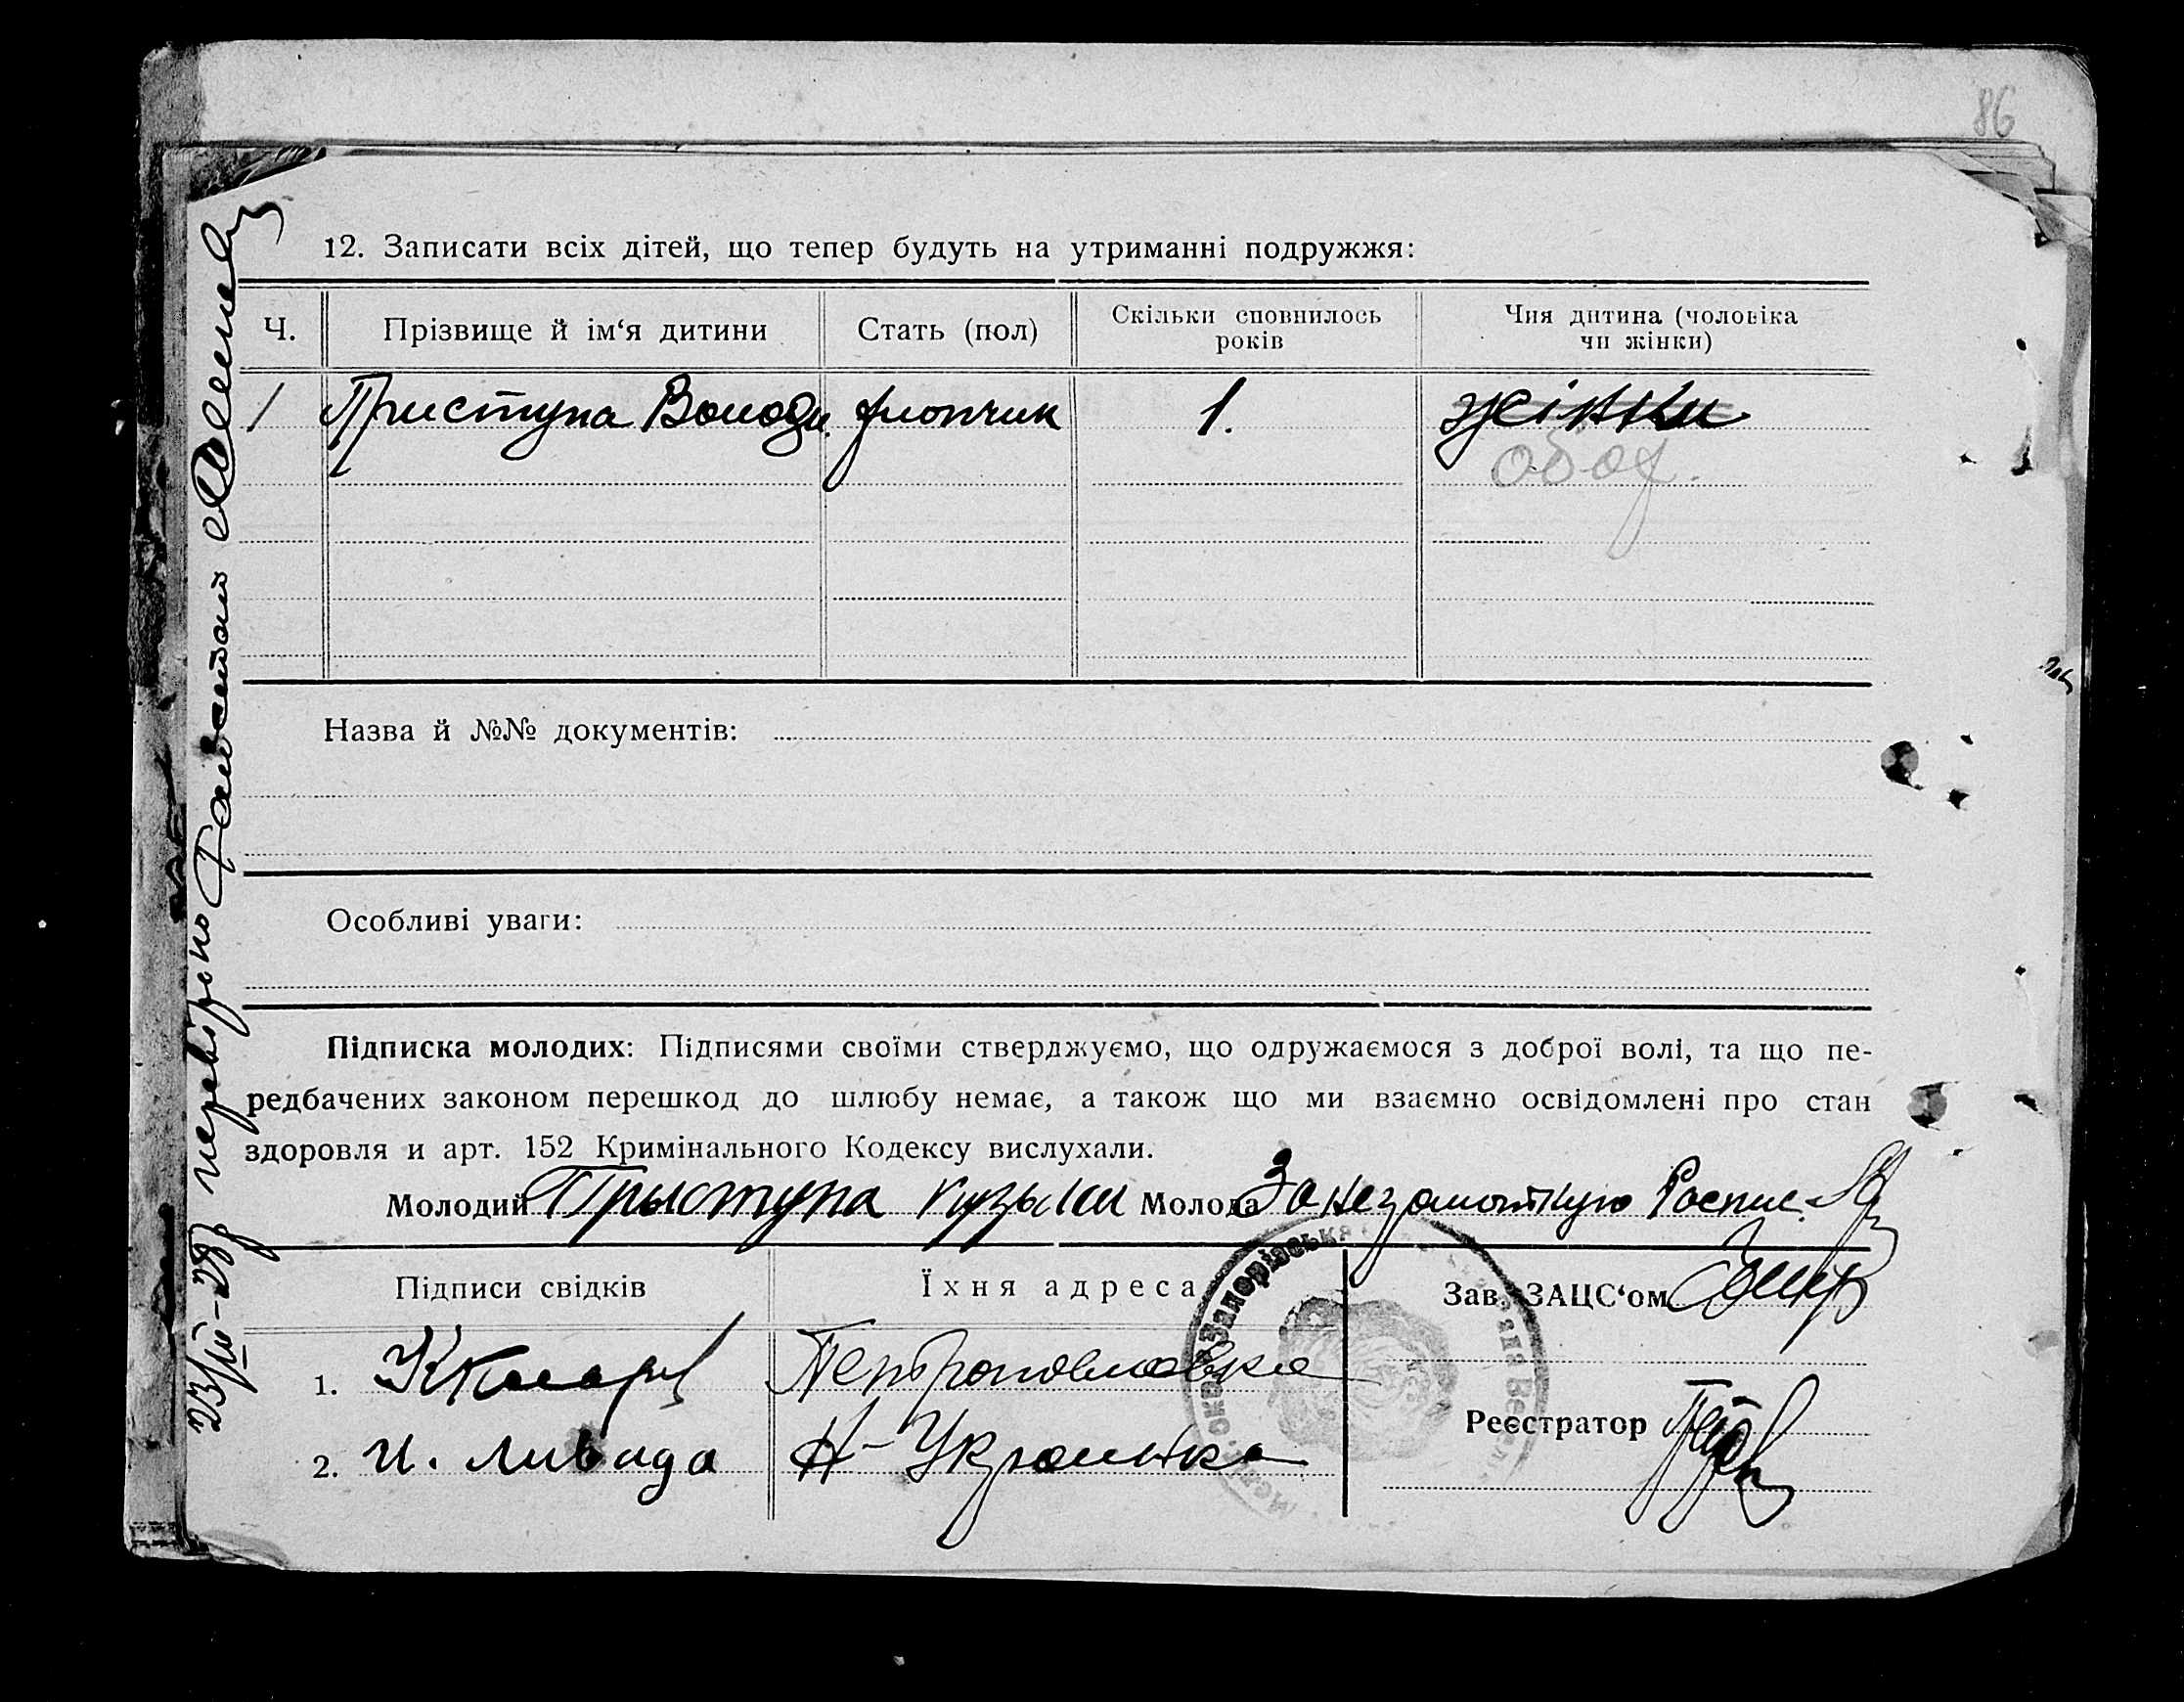 86
12. Записати всіх дітей, що тепер будуть на утриманні подружжя:
Ч. Прізвище й ім‘я дитини Стать (пол) Скільки сповнилось років Чия дитина (чоловіка чи жінки)
1 Приступа Володи. хлопчик 1. жінки
обох.
Назва й №№ документів:
Особливі уваги:
Підписка молодих: Підписями своїми стверджуємо, що одружаємося з доброї волі, та що пе-
редбачених законом перешкод до шлюбу немає, а також що ми взаємно освідомлені про стан
здоровля и арт. 152 Кримінального Кодексу вислухали.
Молодий Прыступа Кузьма Молода За незамотную Роспис.
Підписи свідків Їхня адреса Зав. ЗАЦС‘ом
1. Петропавловка
Реєстратор
2. И. Ливада Н-Украинка
23/III-28 перевірено
Запорізська